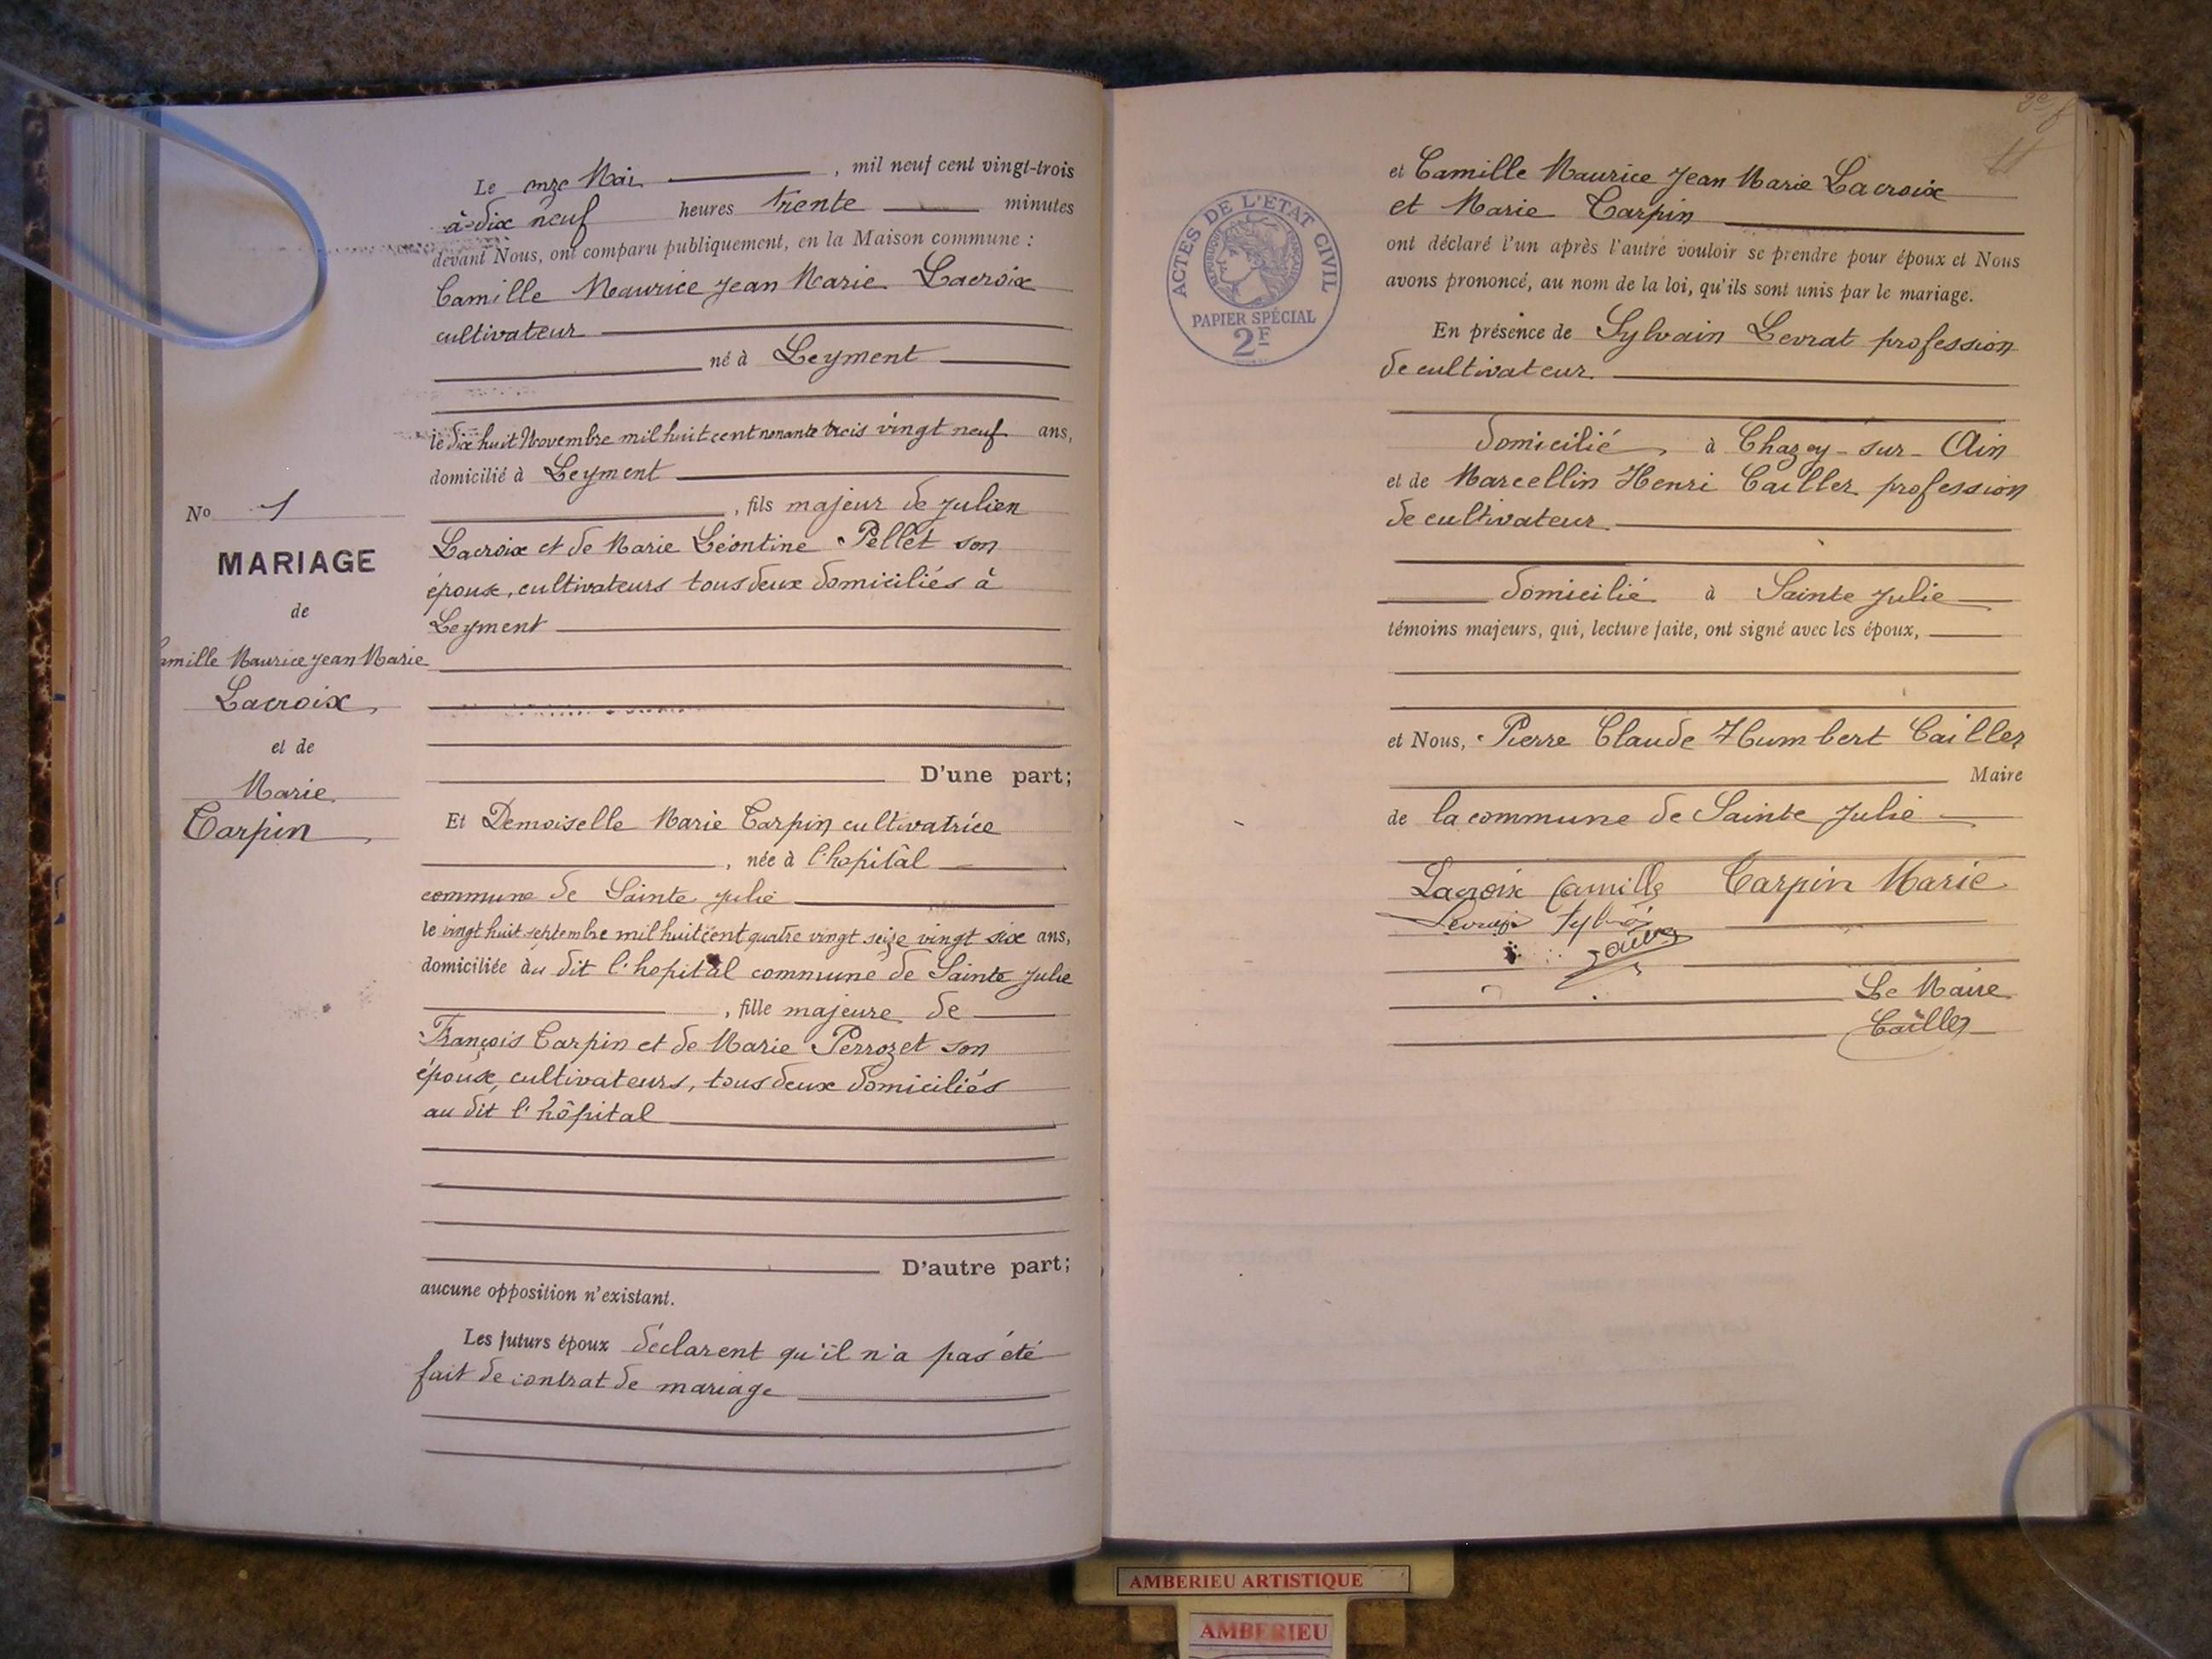 Le onze Mai , mil neuf cent vingt-trois
à dix neuf heures trente minutes
devant Nous, ont comparu publiquement, en la Maison commune :
Camille Maurice Jean Marie Lacroix
cultivateur
né à Leyment
le dix huit Novembre mil huit cent nonante trois vingt neuf ans,
domicilié à Leyment
, fils majeur de Julien
Lacroix et de Marie Léontine Pellet son
épouse, cultivateurs tous deux domiciliés à
Leyment
D'une part;
Et Demoiselle Marie Carpin cultivatrice
, née à l'hopital
commune de Sainte Julie
le vingt huit septembre mil huit cent quatre vingt seize vingt six ans,
domiciliée au dit l'hopital commune de Sainte Julie
, fille majeure de
François Carpin et de Marie Perrozet son
épouse, cultivateurs, tous deux domiciliés
au dit l'hôpital
D'autre part;
aucune opposition n'existant.
Les futurs époux déclarent qu'il n'a pas été
fait de contrat de mariage
No 1
MARIAGE
de
Camille Maurice Jean Marie
Lacroix
et de
Marie
Carpin
ACTES DE L'ETAT CIVIL
PAPIER SPÉCIAL
2F
et Camille Maurice Jean Marie Lacroix
et Marie Carpin
ont déclaré l'un après l'autre vouloir se prendre pour époux et Nous
avons prononcé, au nom de la loi, qu'ils sont unis par le mariage.
En présence de Sylvain Levrat profession
de cultivateur
domicilié à Chazey-sur-Ain
et de Marcellin Henri Cailler profession
de cultivateur
domicilié à Sainte Julie
témoins majeurs, qui, lecture faite, ont signé avec les époux,
et Nous, Pierre Claude Humbert Cailler
Maire
de la commune de Sainte Julie
Lacroix Camille Carpin Marie
Le Maire
Cailler
AMBERIEU ARTISTIQUE
AMBERIEU